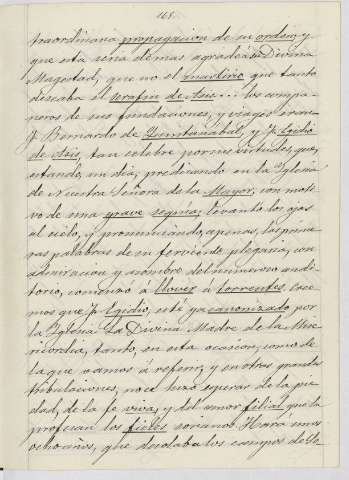 165.
traordinaria propagacion de su orden, y
que esta seria de mas agrado á su Divina
Magestad, que no el martirio que tanto
deseaba el serafin de Asis los compa-
ñeros de sus fundaciones, y viages eran
Fr. Bernardo de Quintanabal, y Fr. Egidio
de Asis, tan celebre por sus virtudes, que,
estando, un dia, predicando en la Iglesia
de Nuestra Señora de la Mayor, con moti-
vo de una grave sequia; levantó los ojos
al cielo, y pronunciando, apenas, las prime-
ras palabras de su ferviente plegaria, con
admiracion y asombro del numeroso audi-
torio, comenzó á llover á torrentes. Cree-
mos que Fr. Egidio, esté ya canonizado por
la Iglesia. La Divina Madre de la Mise-
ricordia, tanto, en esta ocasion, como de
la que vamos á referir, y en otras grandes
tribulaciones, no se hizo esperar de la pie-
dad, de la fe viva, y del amor filial que la
profesan los fieles sorianos. Hará unos
ocho años, que desolaba los campos de